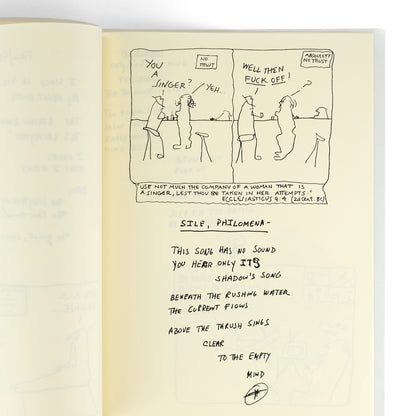 YOU
A
SINGER?
YEH...
NO
TRUST
WELL THEN
FUCK OFF!
ABSOLUTELY
NO TRUST
"USE NOT MUCH THE COMPANY OF A WOMAN THAT IS
A SINGER, LEST THOU BE TAKEN IN HER ATTEMPTS."
ECCLESIASTICUS 9:4 (2d CENT. BC)
SILE, PHILOMENA-
THIS SONG HAS NO SOUND
YOU HEAR ONLY ITS
SHADOW'S SONG
BENEATH THE RUSHING WATER
THE CURRENT FLOWS
ABOVE THE THRUSH SINGS
CLEAR
TO THE EMPTY
MIND